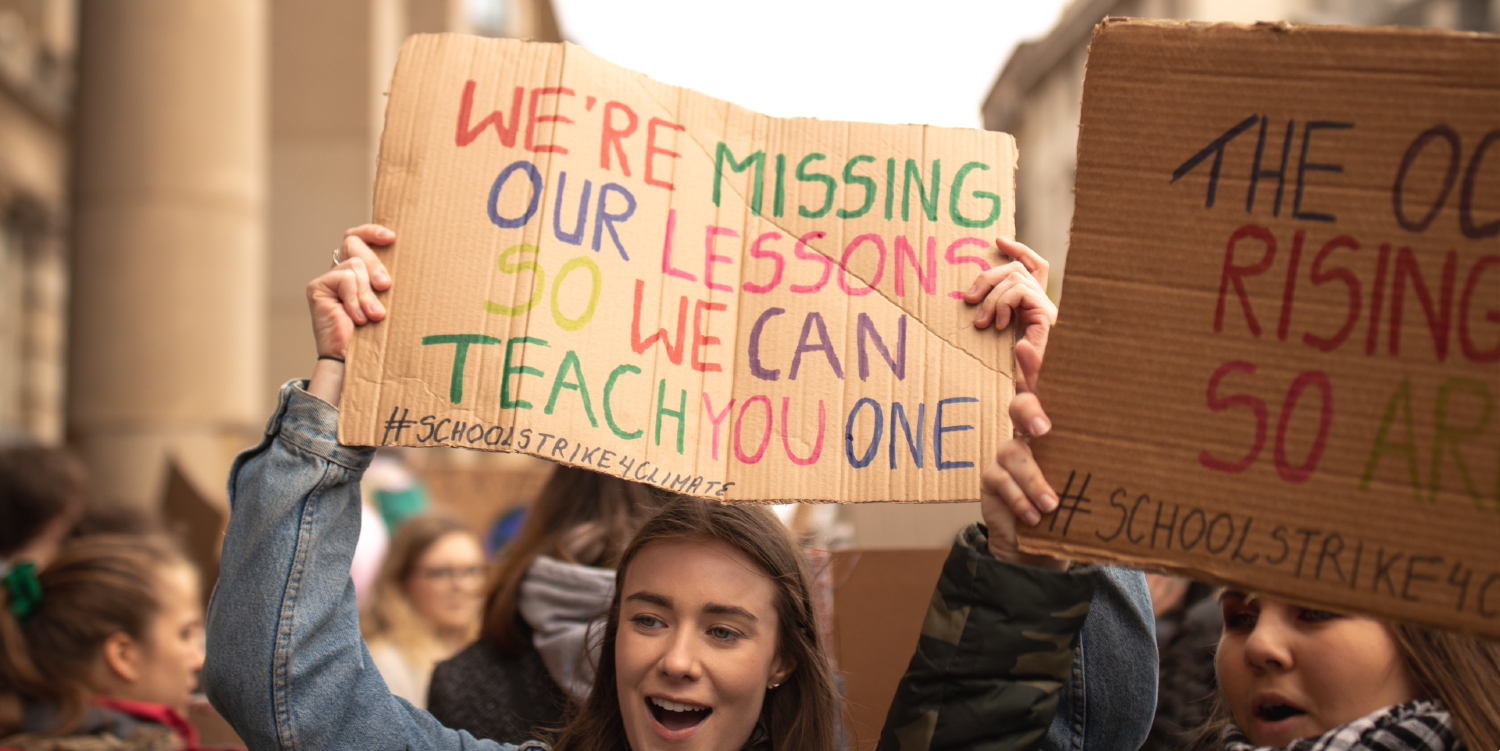 WE'RE MISSING
OUR LESSONS
SO WE CAN
TEACH YOU ONE
#SCHOOLSTRIKE4CLIMATE
THE
RISING
SO
#SCHOOLSTRIKE4C